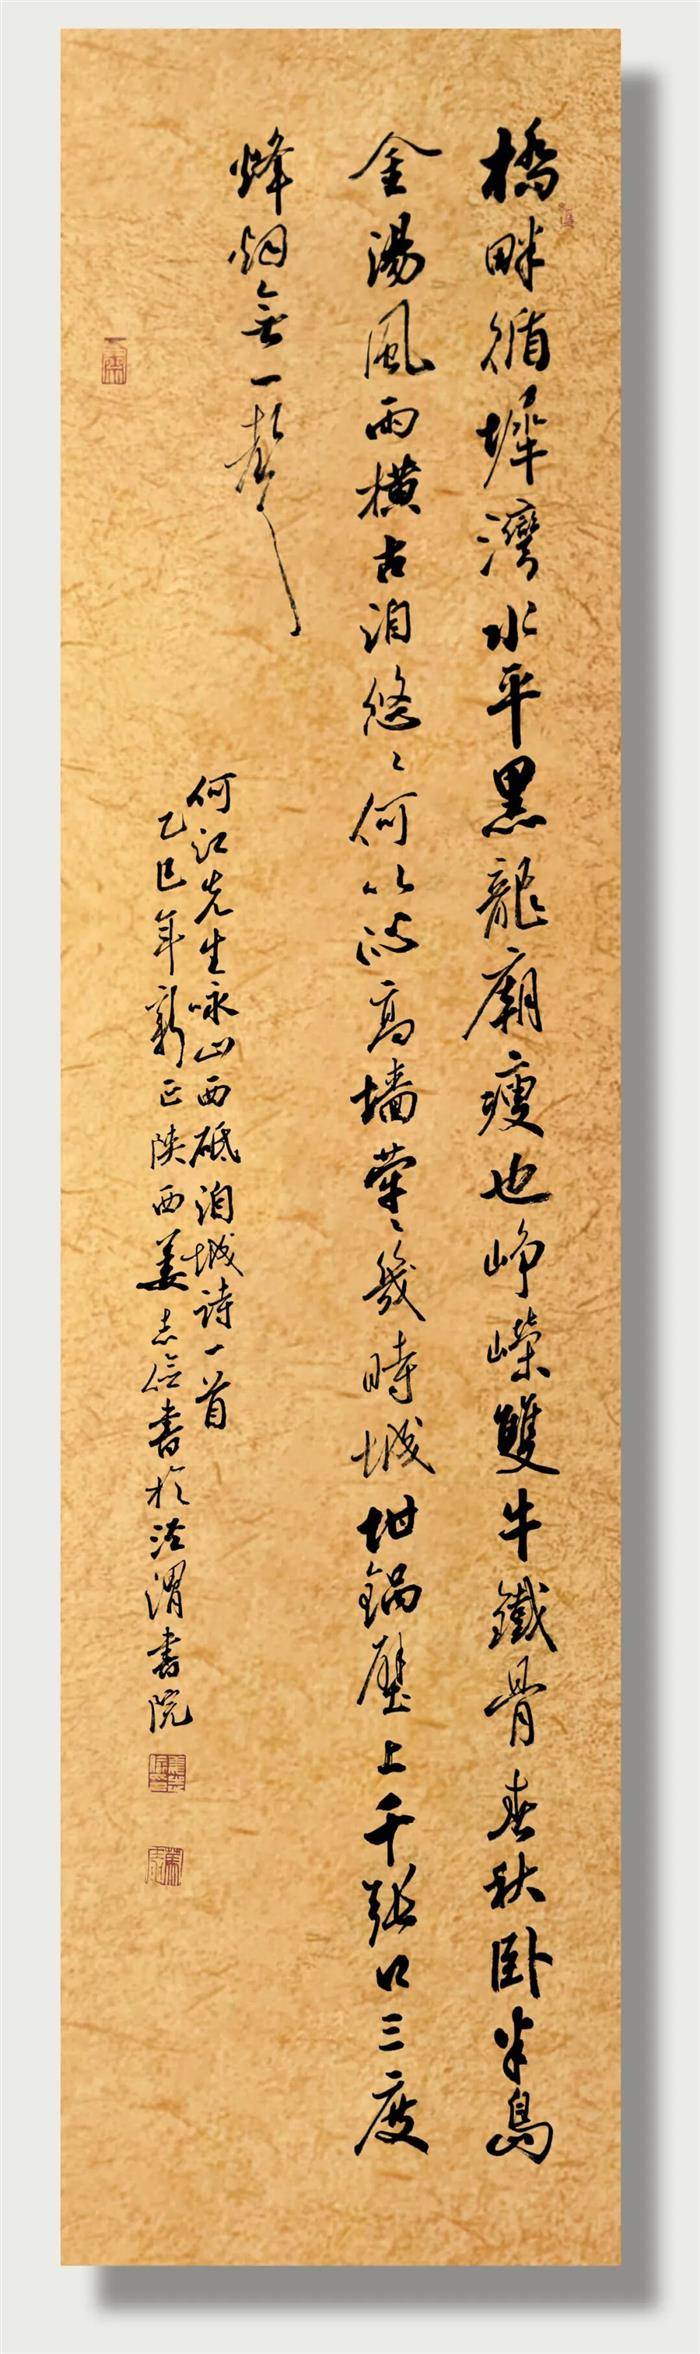 橋畔循墀灣水平黑龍廟瘦也崢嶸雙牛鐵骨春秋卧半島
金湯風雨橫古洎悠〻何以防高墙縈〻幾時城坩鍋壁上千張口三度
烽烟無一聲
何江先生咏山西砥洎城詩一首
乙巳年新正陝西姜志信書於泾渭書院